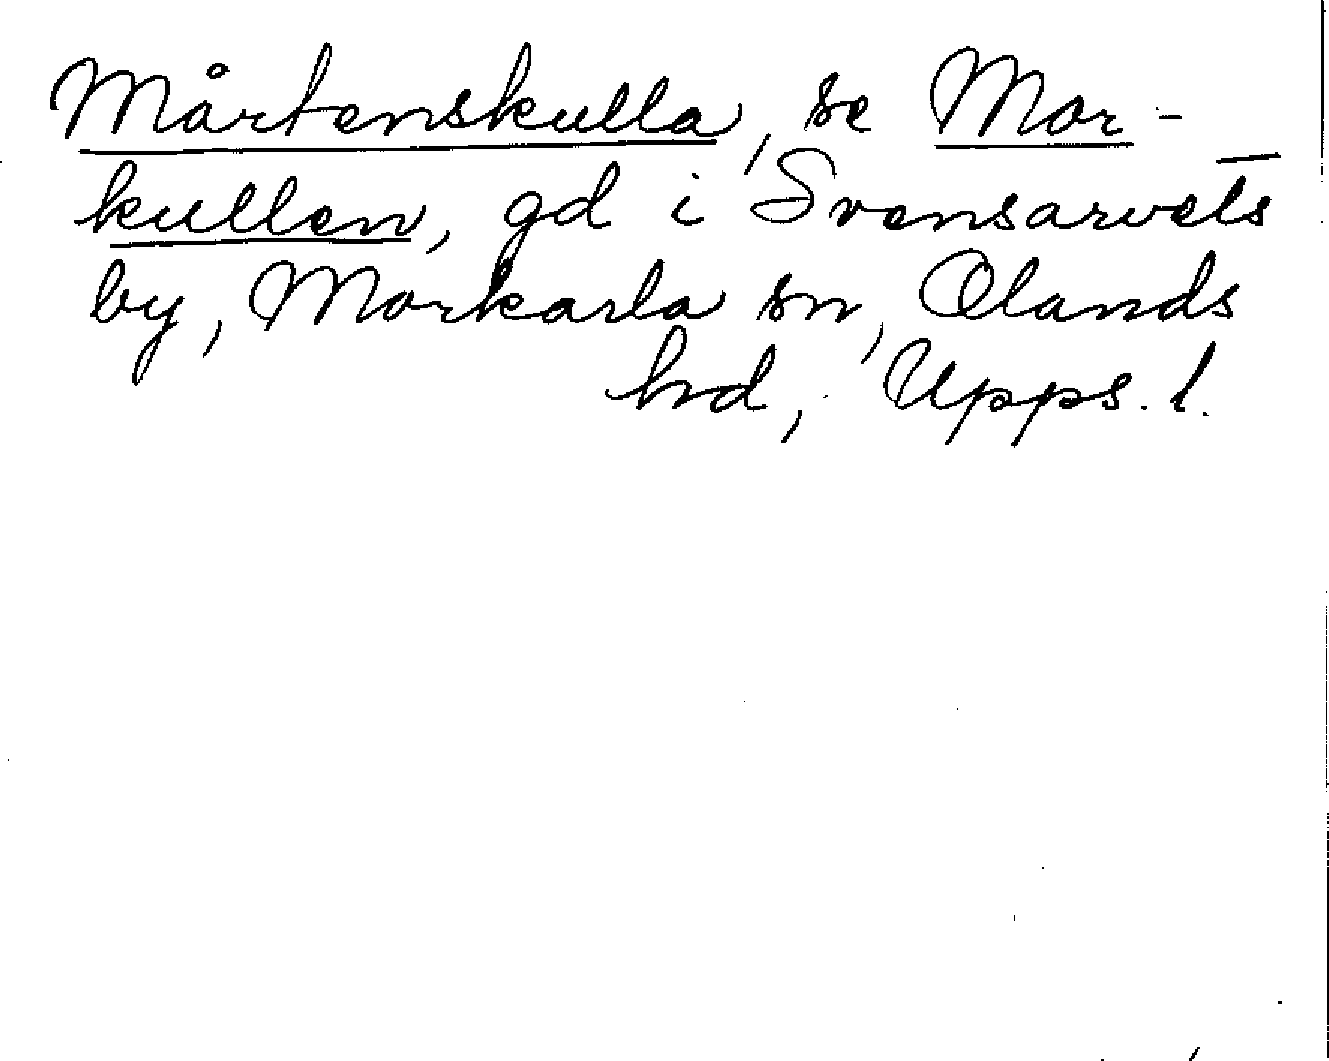 Mårtenskulla, se Mor-
kullen, gd i Svensarvets
by, Morkarla sn, Olands
hd, Upps. l.